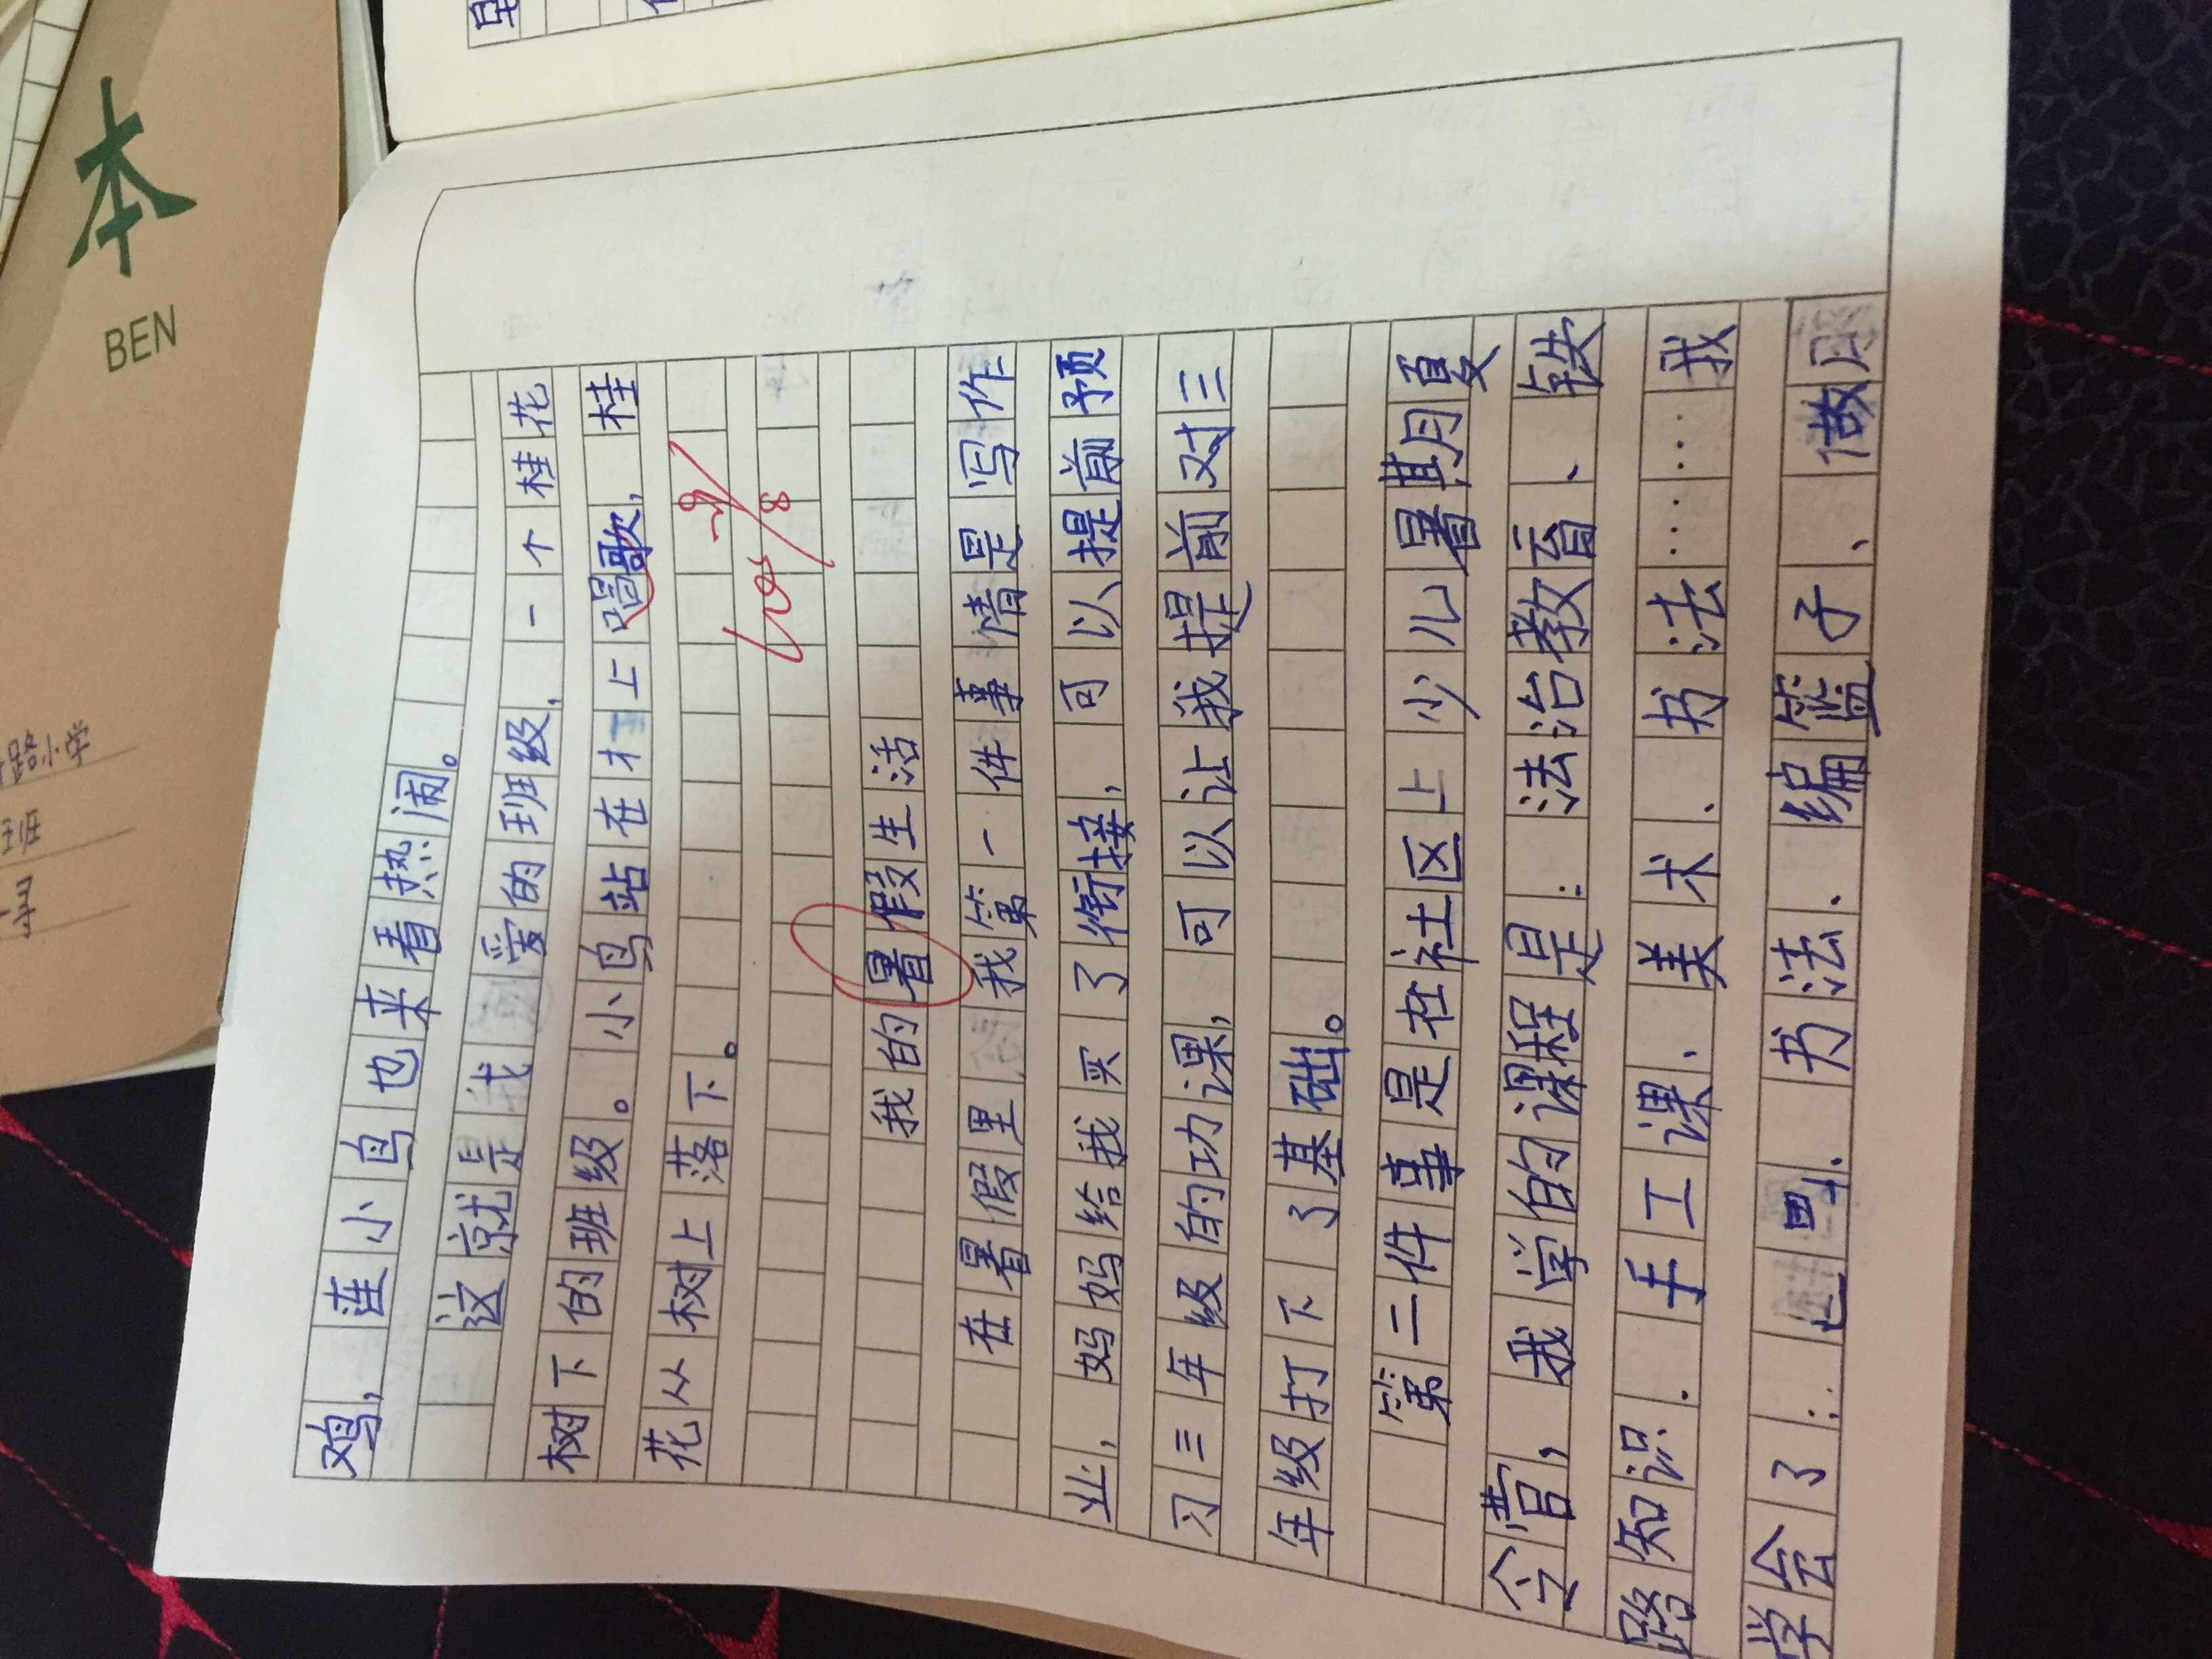 本
BEN
路小学
班
鸡，连小鸟也来看热闹。
这就是我爱的班级，一个桂花
树下的班级。小鸟站在上唱歌，桂
花从树上落下。
我的暑假生活
在暑假里我第一件事情是写作
业，妈妈给我买了衔接，可以提前预
习三年级的功课，可以让我提前对三
年级打下了基础。
第二件事是在社区上少儿暑期夏
令营，我学的课程是：法治教育、铁
路知识、手工课、美术、书法……我
学会了：书法、编篮子、做